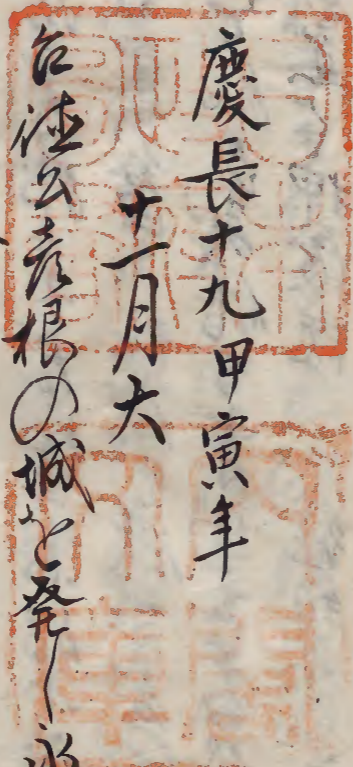 慶長十九甲寅年
十一月大
台徳公彦根の城を発し永